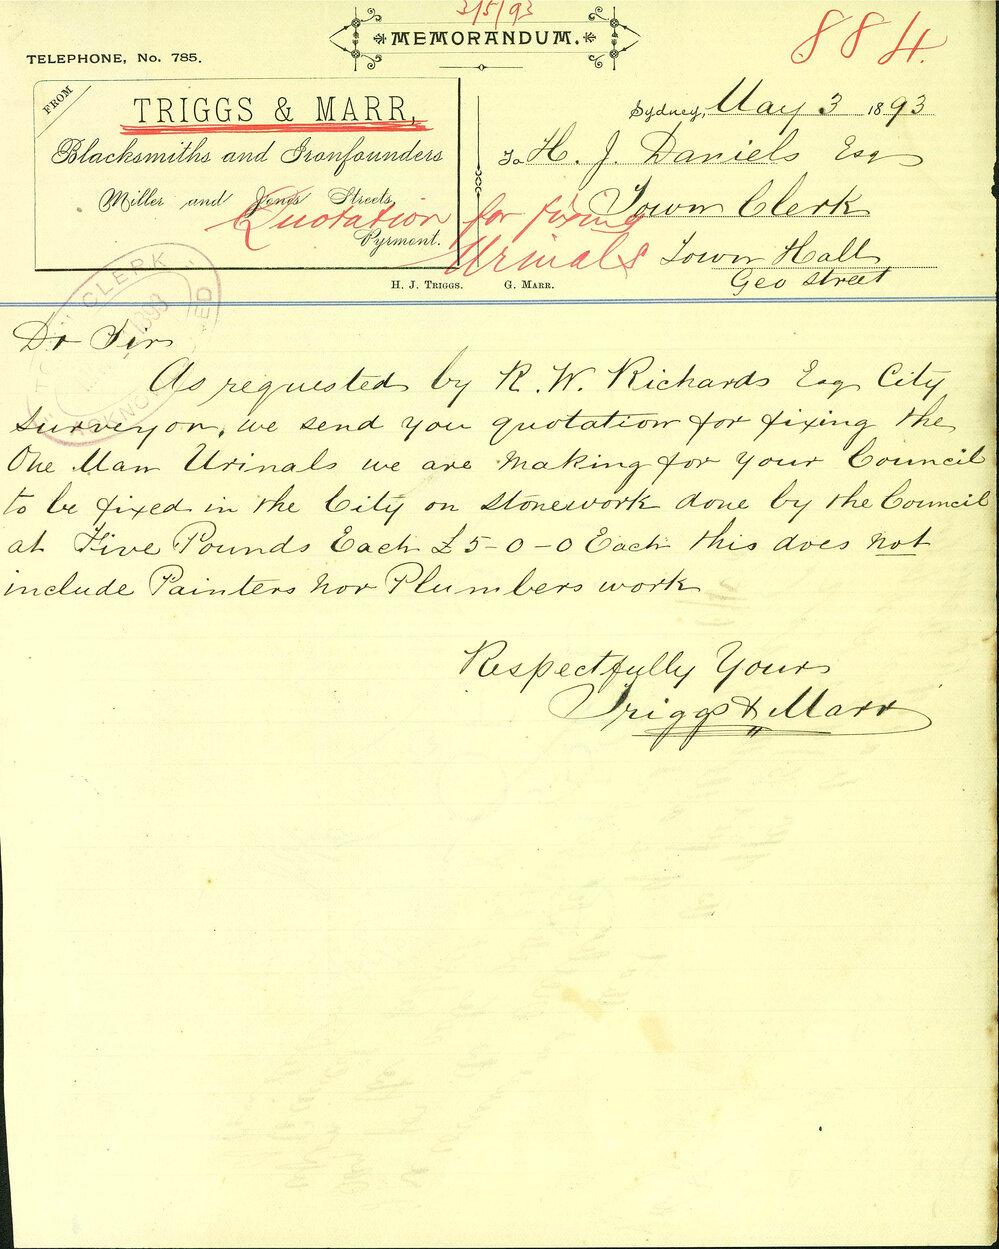 3/5/93
MEMORANDUM.
884.
TELEPHONE, No. 785.
FROM
TRIGGS & MARR,
Blacksmiths and Ironfounders
Miller and Jones Streets,
Pyrmont.
Quotation for fixing
Urinals
H. J. TRIGGS. G. MARR.
Sydney, May 3 1893
To H. J. Daniels Esq
Town Clerk
Town Hall
Geo Street
TOWN CLERK
1893
ACKNOWLEDGED
Dr Sir
As requested by R. W. Richards Esq City
Surveyor, we send you quotation for fixing the
One Man Urinals we are making for your Council
to be fixed in the City on stonework done by the Council
at Five Pounds Each £5-0-0 Each this does not
include Painters nor Plumbers work
Respectfully Yours
Triggs & Marr